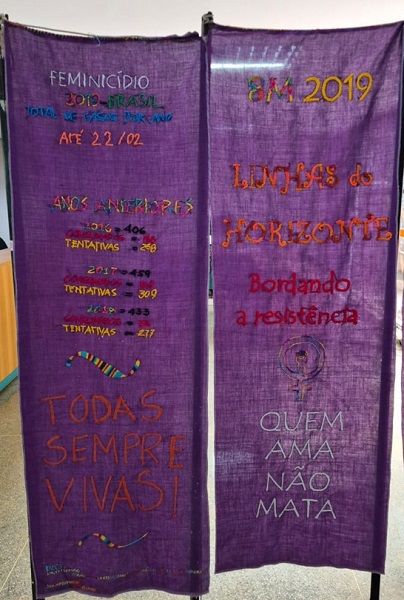 FEMINICÍDIO
2019-BRASIL
TOTAL DE CASOS POR ANO
ATÉ 22/02
ANOS ANTERIORES
2016 = 406
TENTATIVAS = 258
2017 = 459
TENTATIVAS = 309
= 433
TENTATIVAS = 277
TODAS
SEMPRE
VIVAS!
8M 2019
LINHAS do
HORIZONTE
Bordando
a resistência
QUEM
AMA
NÃO
MATA